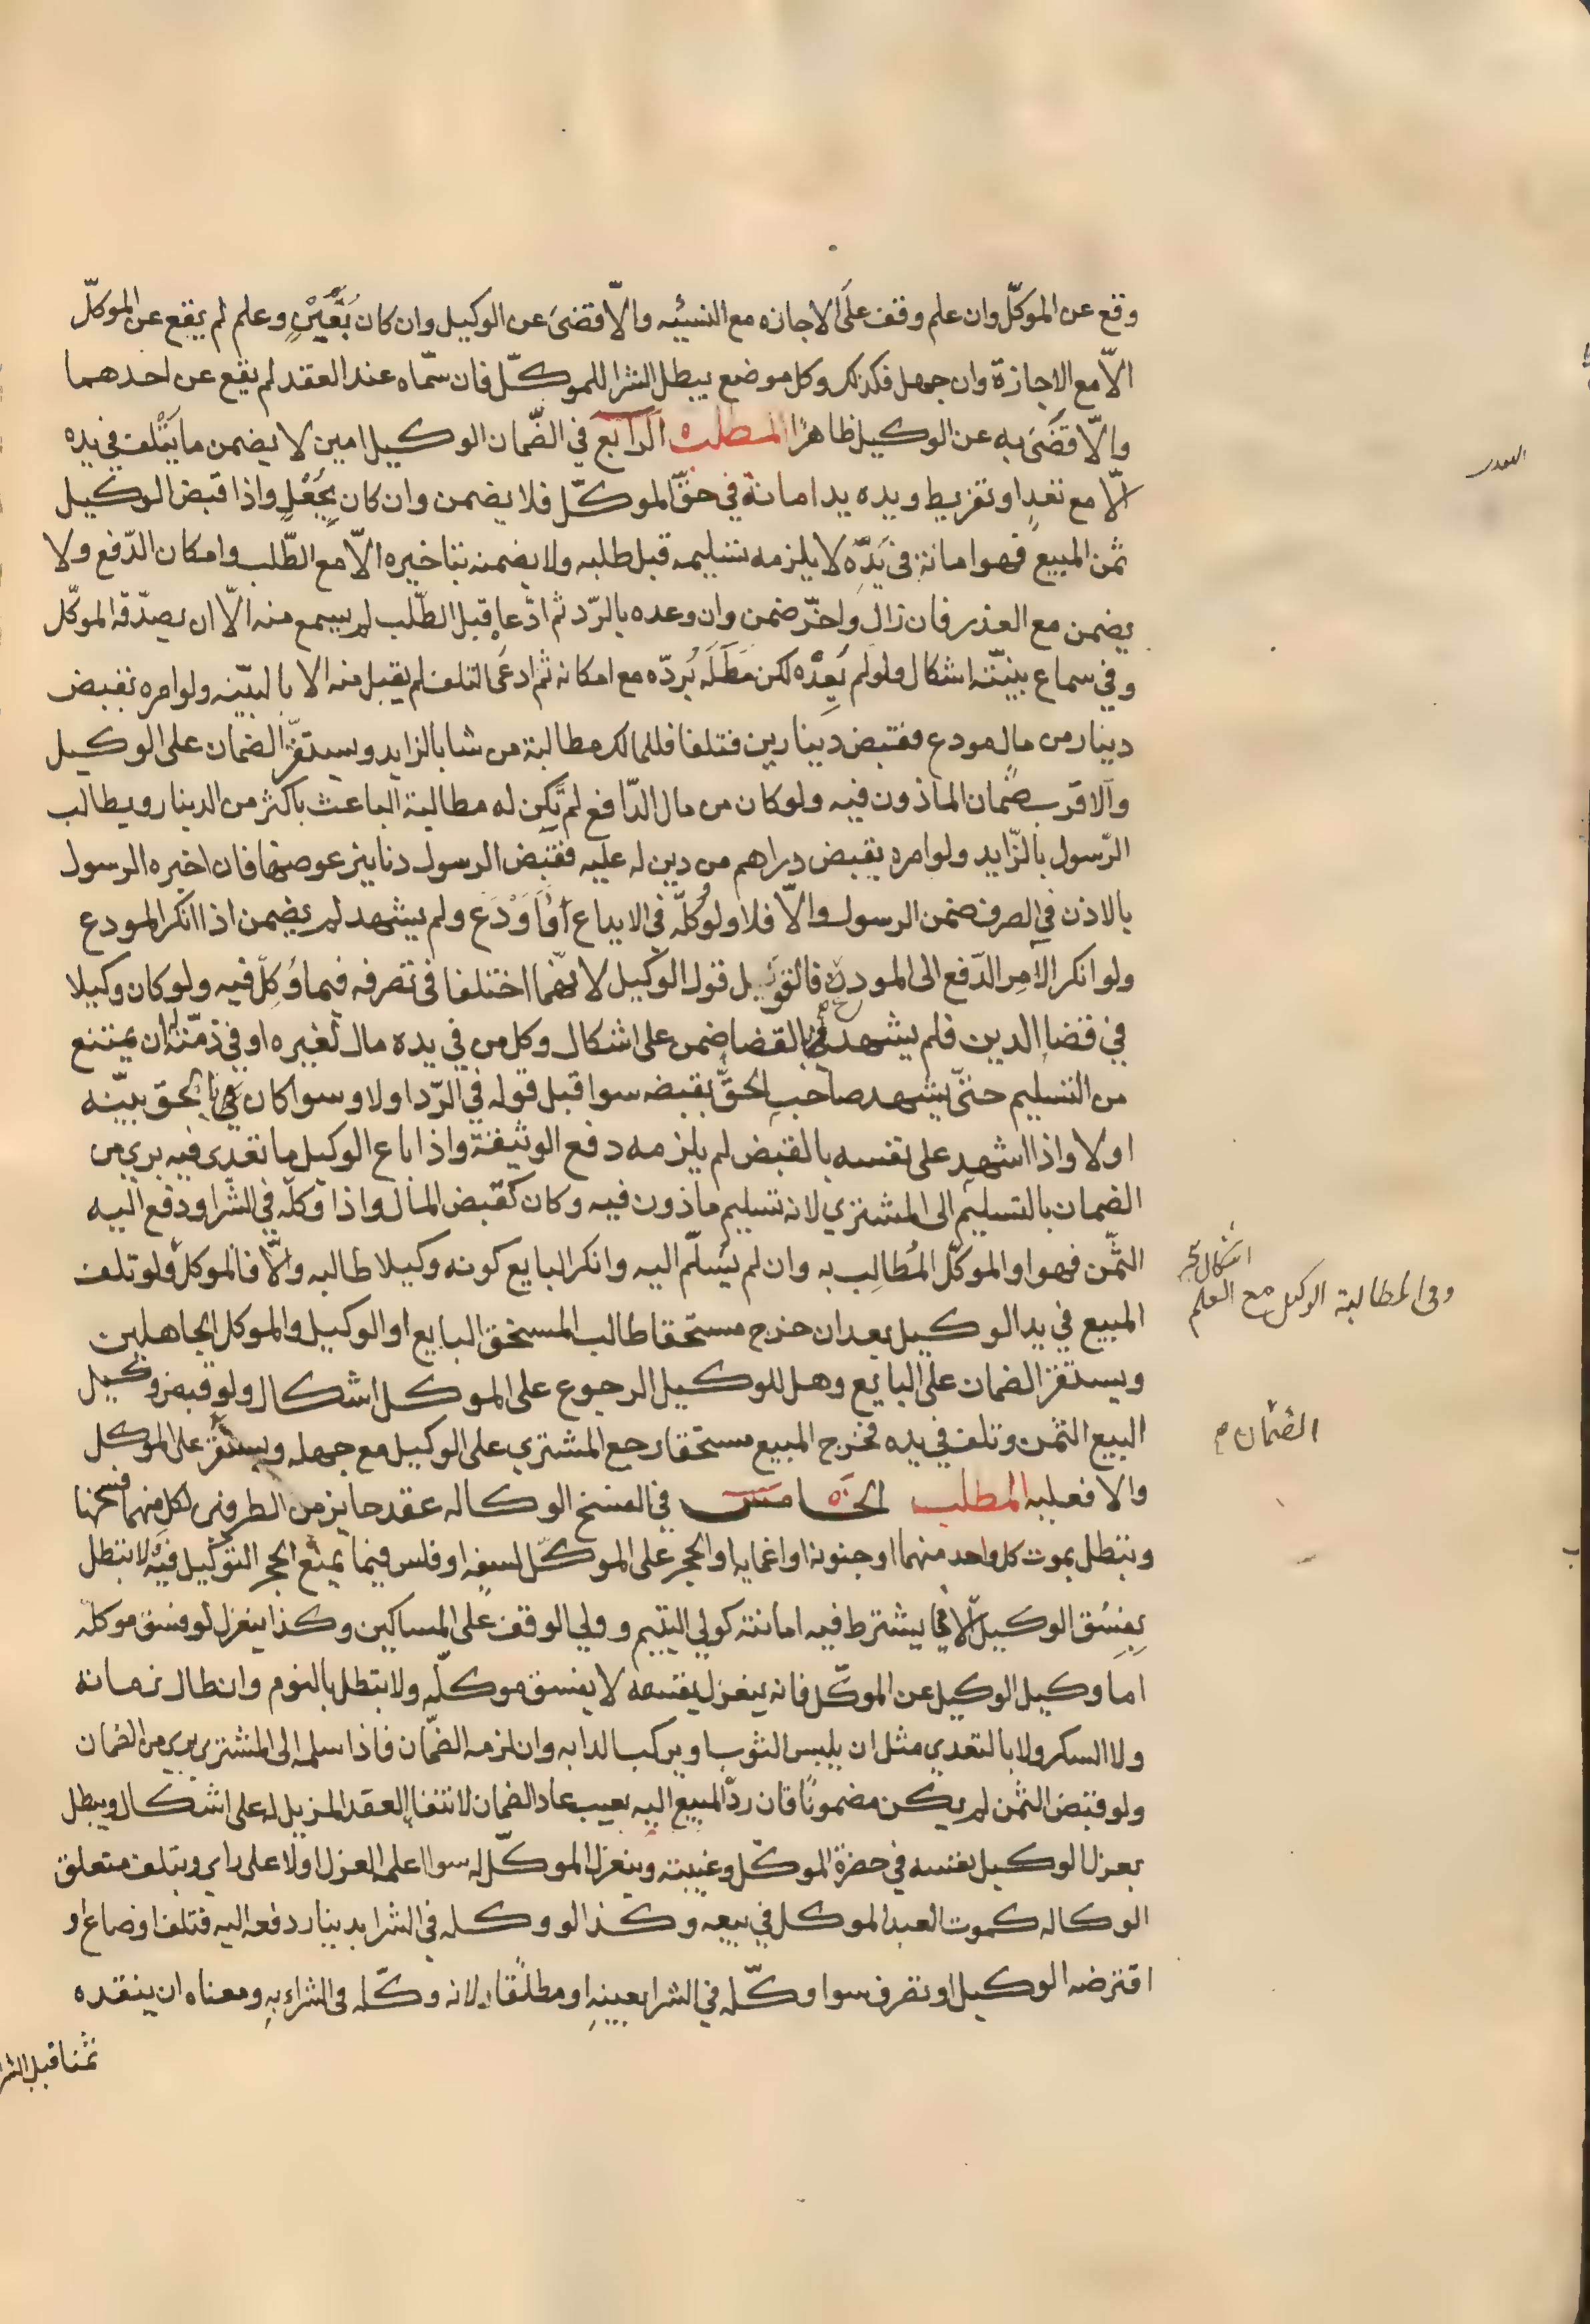 وقع عن الموكّل وان علم وقف علَى الاجازه مع النسيئه والّا قضىَ عن الوكيل وان كان بغَبْنٍ وعلم لم يقع عن الموكلّ
الّا مع الاجازة وان جهل فكذلك وكل موضع يبطل الشرا للموكّل فان سمّاه عند العقد لم يقع عن احدهما
والّا قضَىَ به عن الوكيل ظاهرًا المطلب الرابع في الضّمان الوكيل امين لا يضمن ما يَتْلف في يده
الّا مع تعدٍ او تفريط ويده يد امانة في حقّ الموكّل فلا يضمن وان كان بجُعْلٍ واذا قبض الوكيل
ثمن المبيع فهو امانة في يَدّه لا يلزمه تسليمه قبل طلبه ولا يضمنه بتاخيره الّا مع الطّلب وامكان الدّفع ولا
يضمن مع العذر فان زال واخرّ ضمن وان وعده بالرّد ثم ادّعا قبل الطّلب لم يسمع منه الّا ان يصدّقه الموكّل
وفي سماع بينّته اشكال ولو لم يَعِدْه لكن مَطَلَه بُردّه مع امكانه ثم ادعَى التلف لم يقبل منه الا بالبيّنه ولو امره بقبض
دينار من مال مودع فقبض دينارين فتلفا فللمالك مطالبة من شا بالزايد ويستقرّ الضمان على الوكيل
والاقرب ضمان الماذون فيه ولو كان من مال الدّافع لم يكن له مطالبة الباعث باكثر من الدينار ويطالب
الرّسول بالزّايد ولو امره بقبض دراهم من دين له عليه فقبض الرسول دنانير عوضها فان اخبره الرسول
بالاذن في الصرف ضمن الرسول والّا فلا ولو وُكلّه في الايداع أَوْأَوْدَع ولم يشهد لم يضمن اذا انكر المودع
ولو انكر الآمِر الدّفع الى المودع فالقول قول الوكيل لانهما اختلفا في تصرفه فيما وُكِلّ فيه ولو كان وكيلا
في قضا الدين فلم يشهد بالقضا ضمن على اشكال وكل من في يده مال لغيره او في ذمّته ان يمتنع
من التسليم حتّى يشهد صاحب الحقّ بقبضه سوا قبل قوله في الرّد اولا وسوا كان بالحق بيّنه
اولا واذا اشهد على نفسه بالقبض لم يلزمه دفع الوثيقة واذا باع الوكيل ما تعدى فيه بري من
الضمان بالتسليم الى المشتري لانه تسليم ماذون فيه وكان كقبض المال واذا وكلّه في الشّرا ودفع اليه
الثّمن فهو او الموكّل المُطالِب به وان لم يسُلّم اليه وانكر البايع كونه وكيلا طالبه والّا فالموكل فلو تلف
المبيع في يد الوكيل بعد ان خرج مستحقا طالب المستحق البايع او الوكيل والموكل الجاهلين
ويستقر الضمان على البايع وهل للوكيل الرجوع على الموكل اشكال ولو قبض وكيل
البيع الثمن وتلف في يده فخرج المبيع مستحقا رجع المشتري على الوكيل مع جهله ويستقر على الموكل
والا فعليه المطلب الخامس في الفسخ الوكاله عقد جايز من الطرفين لكل منهما فسخها
وتبطل بموت كل واحد منهما او جنونة او اغمايه او الحجر على الموكّل لسفه او فلس فيما يمنع الحجر التوكيل فيه لا تبطل
بِفِسُق الوكيل الّا فيما يشترط فيه امانته كولي اليتيم وولي الوقف على المساكين وكذا ينعزل لو فسق موكله
اما وكيل الوكيل عن الموكّل فانه ينعزل بفسقه لا بفسق موكلّه ولا تبطل بالنوم وان طال زمانه
ولا السكر ولا بالتعدي مثل ان يلبس الثوب او يركب الدابه وان لزمه الضمّان فاذا سلمه الى المشتري بري من الضمان
ولو قبض الثمن لم يكن مضمونًا فان ردّ المبيع اليه بعيب عاد الضمان لانتفا العقد المزيل له على اشكال ويبطل
بعزل الوكيل نفسه في حضرة الموكّل وغيبته وينعزل الموكّل له سوا اعلمه العزل اولا على راي وبتلف متعلق
الوكاله كموت العبد الموكل في بيعه وكذا لو وكله في الشرا بدينار دفعه اليه فتلف او ضاع او
اقترضه الوكيل او تصرف سوا وكّله في الشرا بعينهِ او مطلقًا لانه وكّله في الشراء بهِ ومعناه ان ينقده
ثمنا قبل الشرا
اشكال
وفي المطالبة الوكيل مع العلم
الضمان